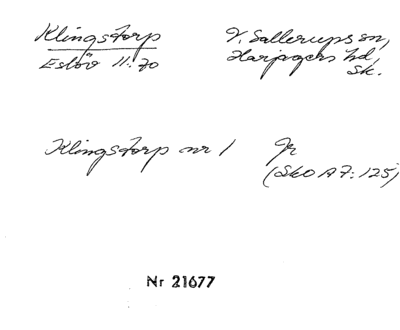 Klingstorp
V. Sallerups sn,
Eslöv 11:70
Harjagers hd,
Sk.
Klingstorp nr 1
Gr
(SkO A 7:125)
Nr 21677